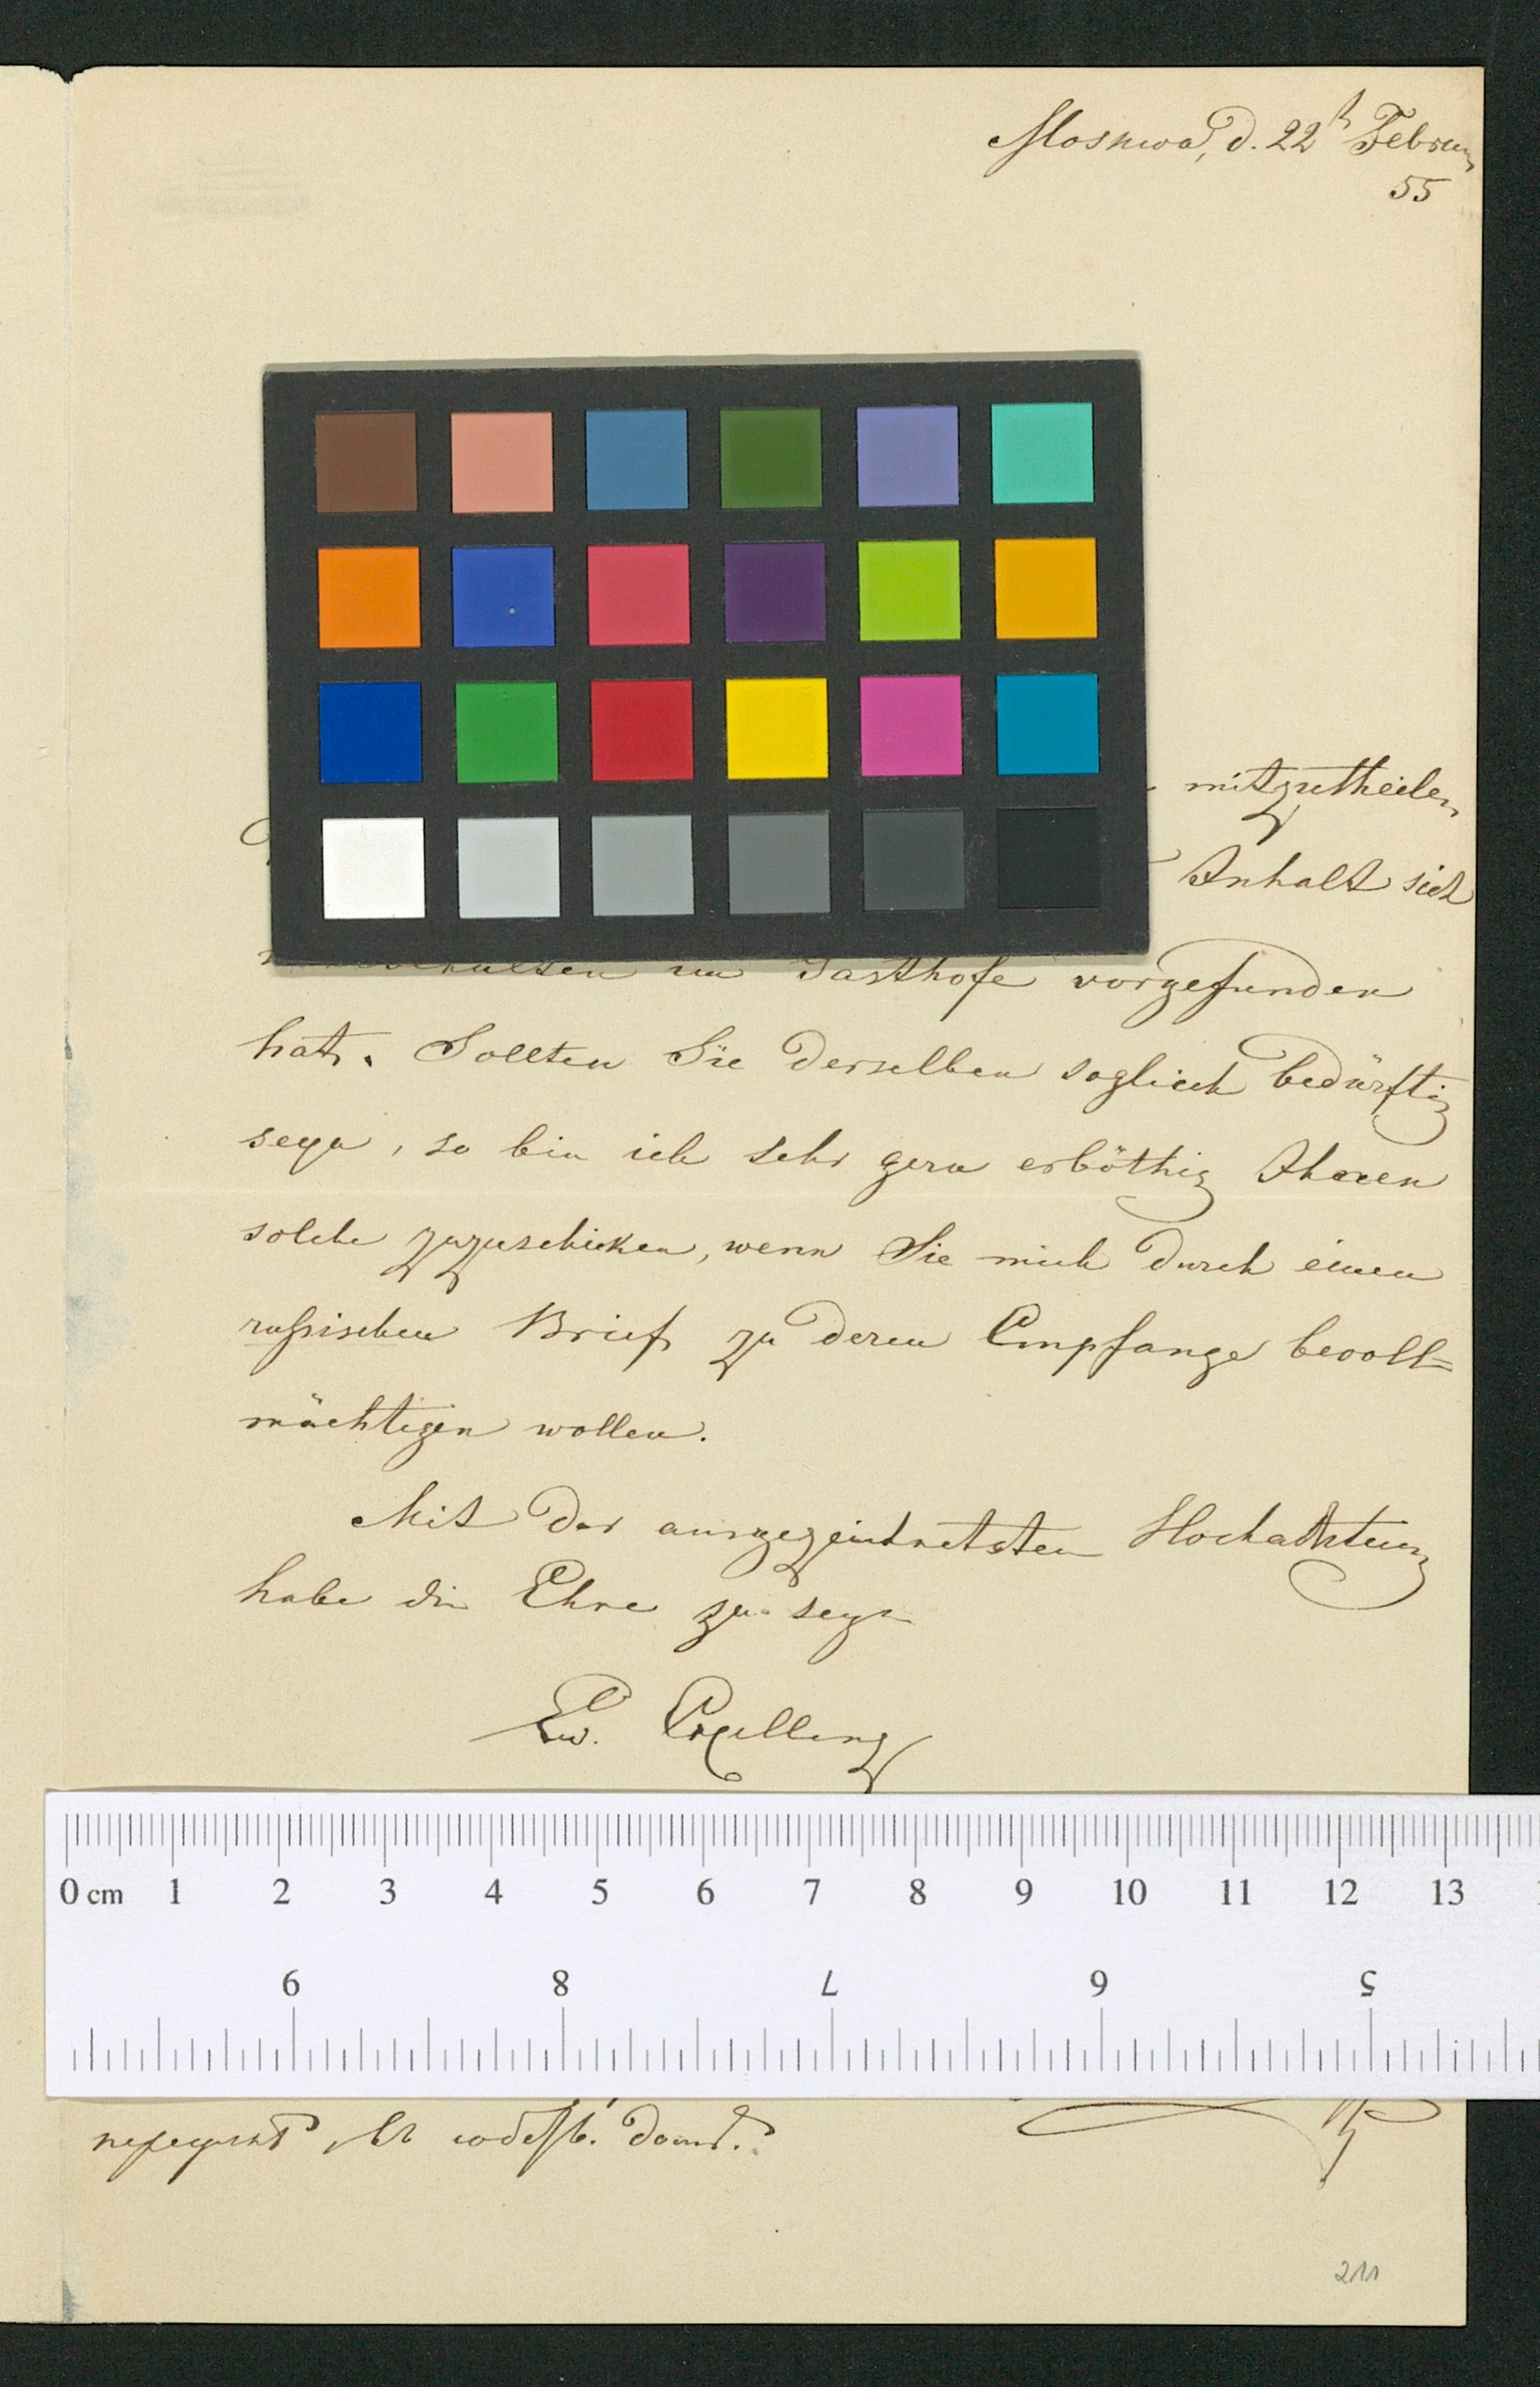 Moskwa, d. 22t Februar
55
mitzutheilen
Anhalt sich
im Gasthofe vorgefunden
hat. Sollten Sie derselben sogleich bedürftig
seyn, so bin ich sehr gern erböthig Ihnen
solche zuzuschicken, wenn Sie mich durch einen
rußischen Brief zu deren Empfange bevoll=
mächtigen wollen.
Mit der ausgezeichnetsten Hochachtung
habe die Ehre zu seyn
Ew. Excellenz
0 cm 1 2 3 4 5 6 7 8 9 10 11 12 13
9 8 7 6 5
домѣ.
211